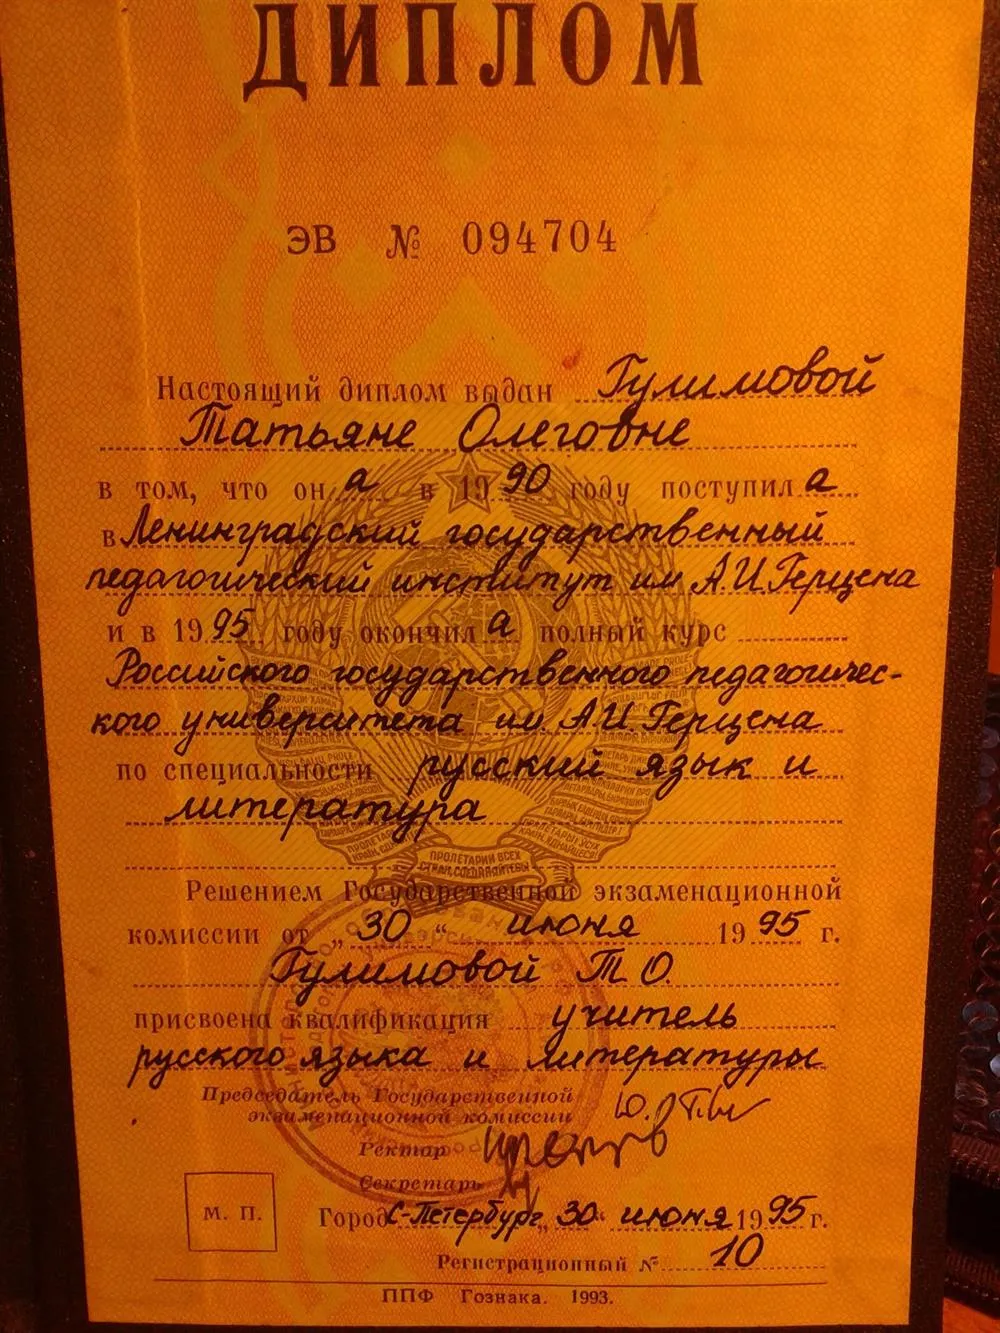 ДИПЛОМ
ЭВ № 094704
Настоящий диплом выдан Гулимовой
Татьяне Олеговне
в том, что он а в 1990 году поступил а
в Ленинградский государственный
педагогический институт им А.И.Герцена
и в 1995 году окончил а полный курс
Российского государственного педагогичес-
кого университета им. А.И. Герцена
по специальности русский язык и
литература
ПРОЛЕТАРИИ ВСЕХ
СТРАН, СОЕДИНЯЙТЕСЬ!
Решением Государственной экзаменационной
комиссии от „30“ июня 1995 г.
Гулимовой Т.О.
присвоена квалификация учитель
русского языка и литературы
Председатель Государственной
экзаменационной комиссии
Ректор
Секретарь
М. П.
Город С-Петербург, „30“ июня 1995 г.
Регистрационный № 10
ППФ Гознака. 1993.